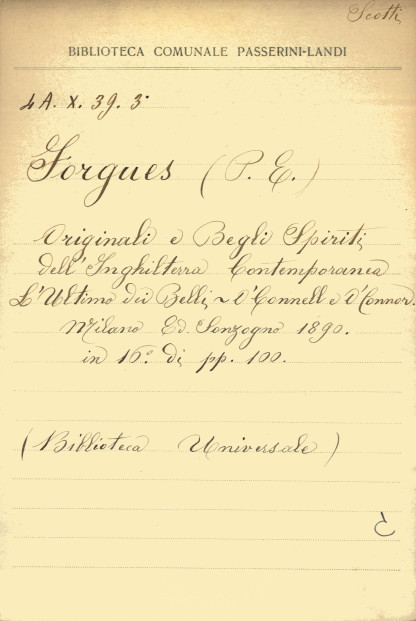 Scotti
BIBLIOTECA COMUNALE PASSERINI-LANDI
4A. X. 39. 3
Forgues (P. E.)
Originali e Begli Spiriti
dell'Inghilterra Contemporanea
L'Ultimo dei Belli ~ O'Connell e O'Connor.
Milano Ed. Sonzogno 1890.
in 16.° di pp. 100.
(Biblioteca Universale)